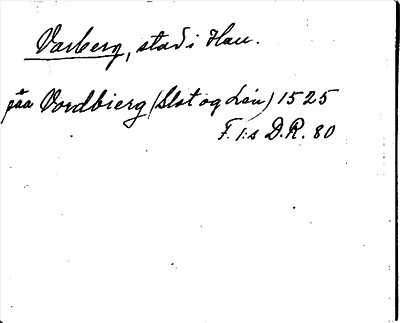 Varberg, stad i Hall.
paa Vordbierg (Slot og Len) 1525
F. I:s D.R. 80